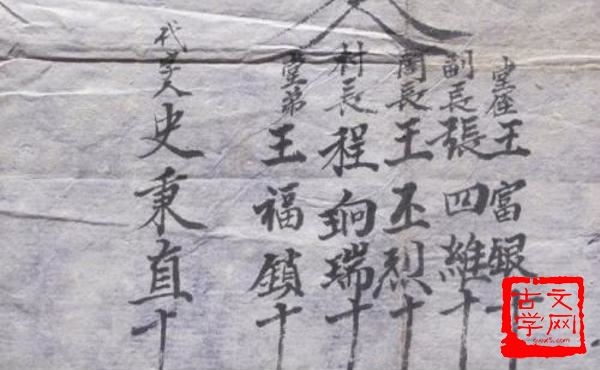 堂侄王富银十
副長張四維十
閭長王丕烈十
村長程珦瑞十
堂弟王福鎖十
代字人史秉直十
古文学网